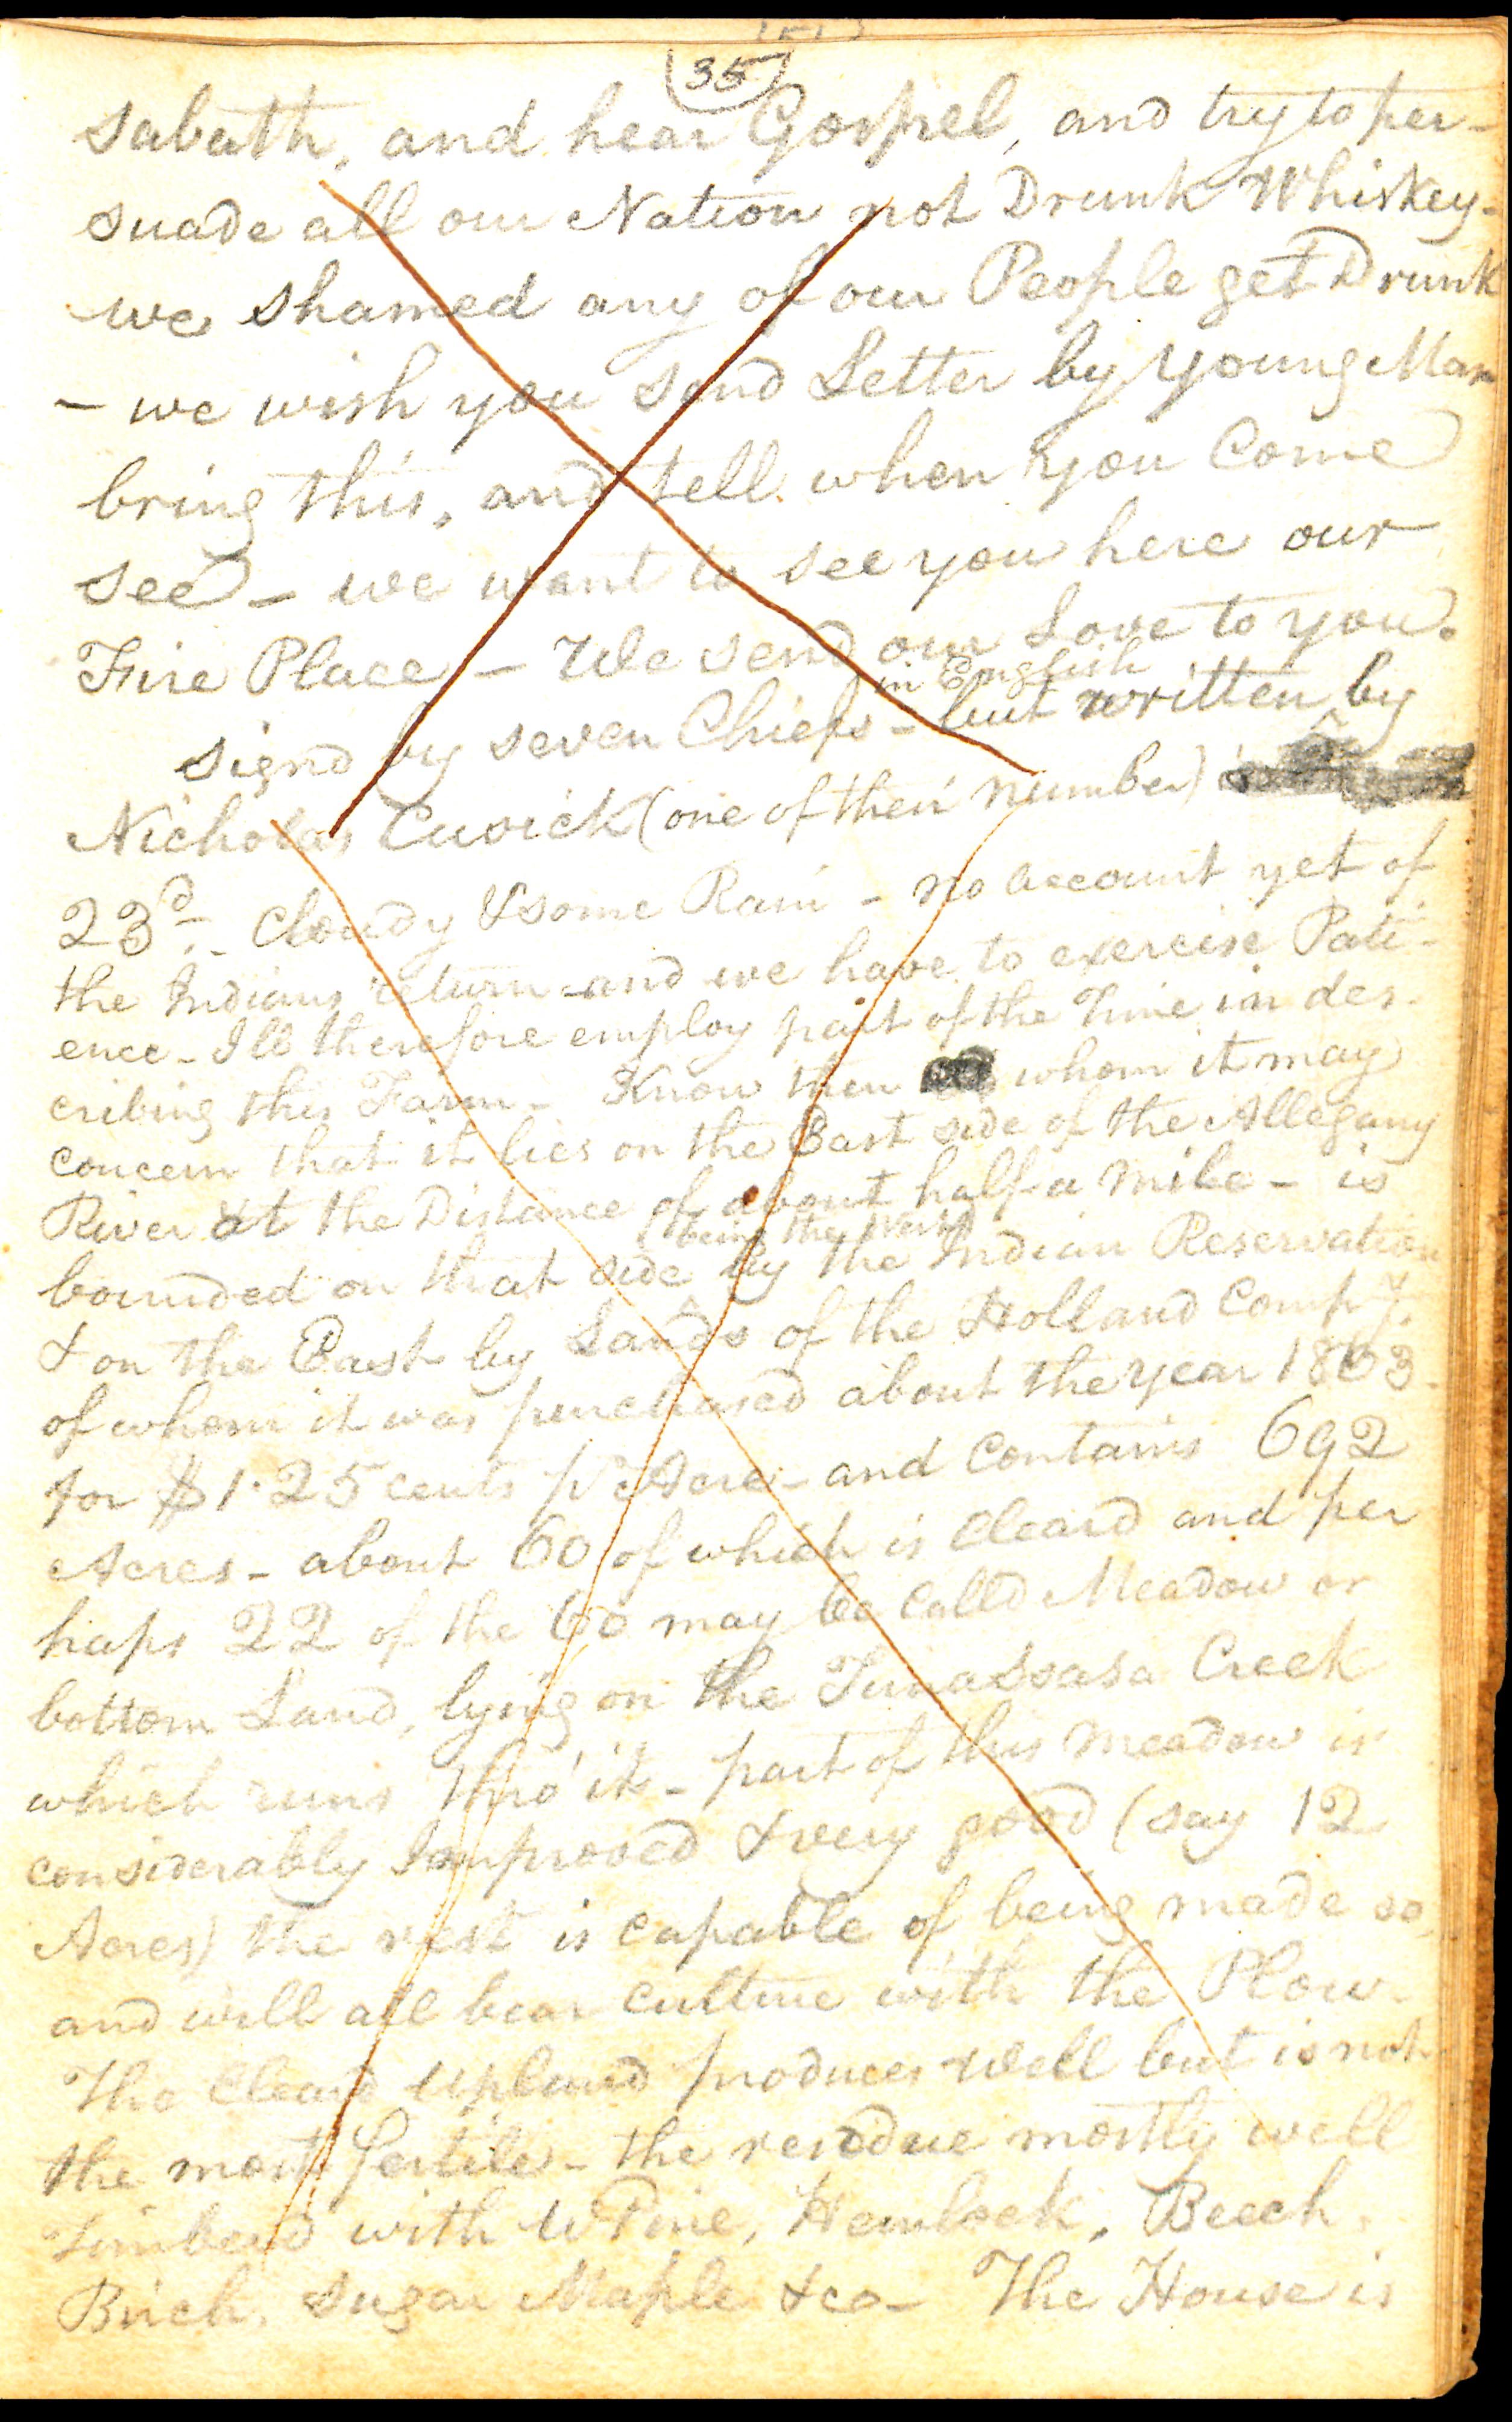 (35)
sabath, and hear Gospel, and try to per-
suade all our Nation not Drunk Whiskey-
we shamed any of our People get Drunk
- we wish you send Letter by Young Man
bring this, and tell when you Come
see - we want to see you here our
Fire Place - We send our Love to you.
in English
signd by seven Chiefs - but written by
Nicholas Cusick (one of their number)
23d.- Cloudy & some Rain - no account yet of
the Indians return - and we have to exercise Pati-
ence - Ill therefore employ part of the Time in des-
cribing this Farm - Know then whom it may
concern that it lies on the East side of the Allegany
River at the Distance of about half a mile - is
(being the West)
bounded on that side by the Indian Reservation
& on the East by Lands of the Holland Compy.
of whom it was purchased about the year 1803
for $1.25 cents pr Acre - and Contains 692
Acres - about 60 of which is Cleard and per
haps 22 of the 60 may be Calld Meadow or
bottom Land, lying on the Tunassasa Creek
which runs thro' it - part of this meadow is
considerably Improved & very good (say 12
Acres) the rest is capable of being made so,
and will all bear culture with the Plow -
The Cleard Upland produces well but is not
the most fertile - the residue mostly well
Timberd with W Pine, Hemlock, Beech,
Birch, Sugar Maple &ca - The House is